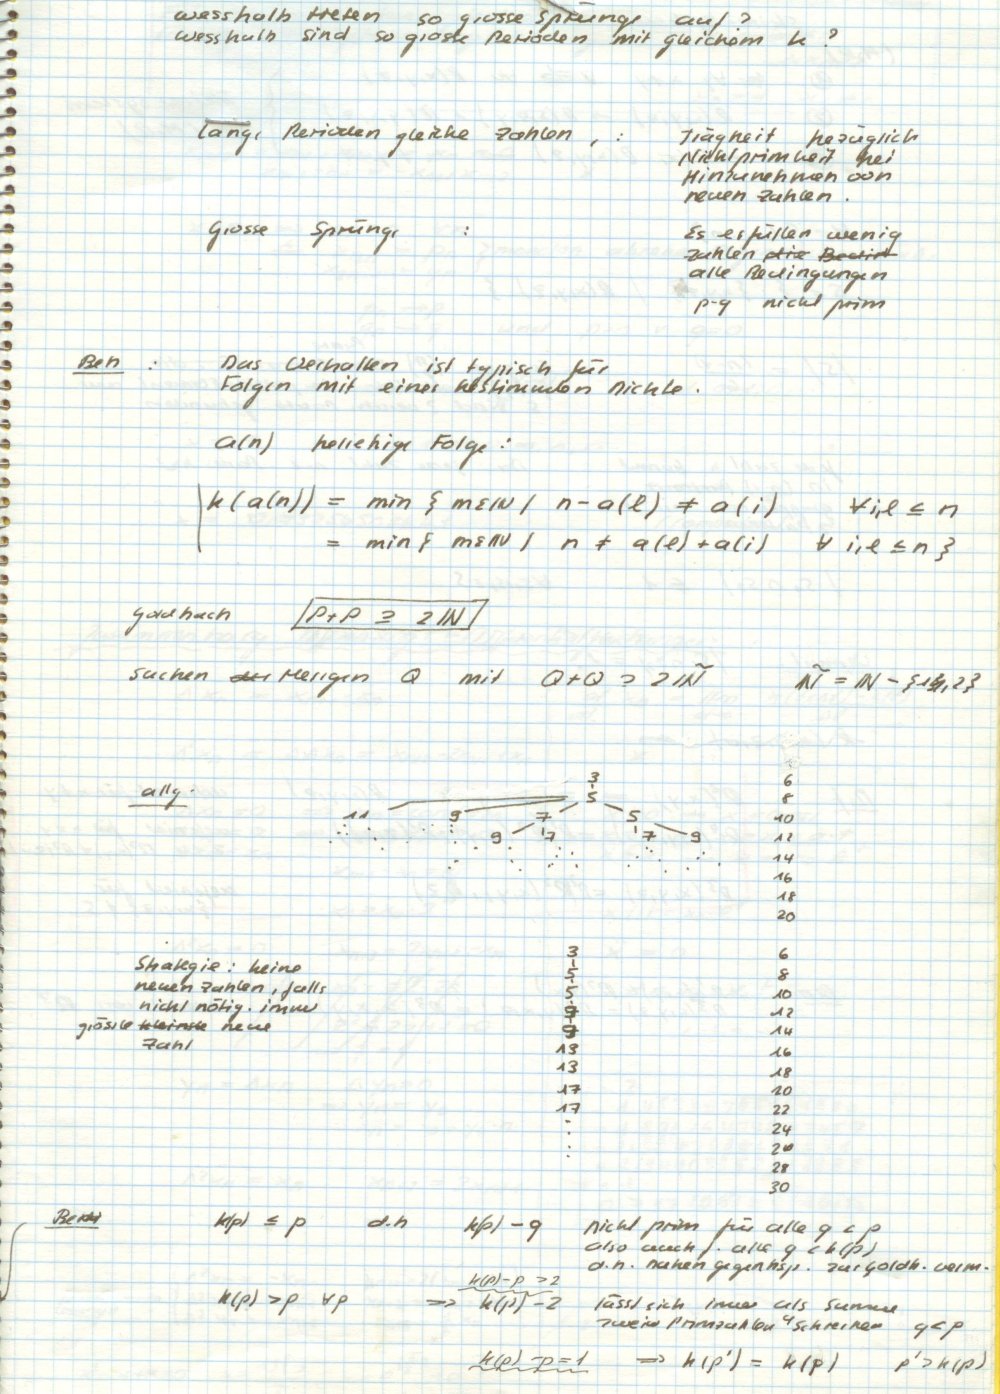 wesshalb treten so grosse Sprünge auf?
wesshalb sind so grosse Perioden mit gleichem k?
lange Perioden gleiche Zahlen, : Trägheit bezüglich
Nichtprimheit bei
Hinzunehmen von
neuen Zahlen.
Grosse Sprünge : Es erfüllen wenig
Zahlen die Bedin
alle Bedingungen
p-q nicht prim
Bem : Das Verhalten ist typisch für
Folgen mit einer bestimmten Dichte.
a(n) beliebige Folge:
k(a(n)) = min { m∈ℕ / n-a(l) ≠ a(i) ∀i,l ≤ n
= min { m∈ℕ / n ≠ a(l)+a(i) ∀ i,l ≤ n }
Goldbach P+P ⊇ 2ℕ
suchen Mengen Q mit Q+Q ⊃ 2Ñ Ñ = ℕ - {1,2}
allg.
3 6
5 8
11 9 7 5 10
9 7 7 9 12
14
16
18
20
Strategie: keine 3 6
neuen Zahlen, falls 5 8
nicht nötig. immer 5 10
grösste kleinste neue 9 12
Zahl 9 14
13 16
13 18
17 20
17 22
24
26
28
30
Bem k(p) ≤ p d.h k(p) - q nicht prim für alle q < p
also auch f. alle q < k(p)
d.h. haben gegenbsp. zur Goldb. verm.
k(p)-p > 2
k(p) > p ∀p ⟹ k(p) - 2 lässt sich immer als Summe
zweier Primzahlen schreiben q<p
k(p) - p = 1 ⟹ k(p') = k(p) p' > k(p)